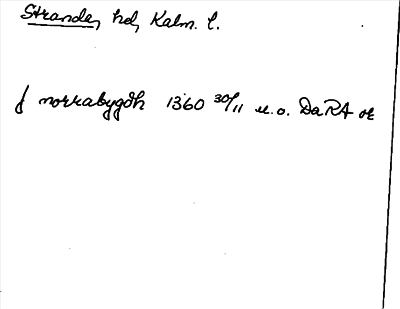 Stranda, hd, Kalm. l.
J norrabygdh 1360 30/11 u.o. DaRA or